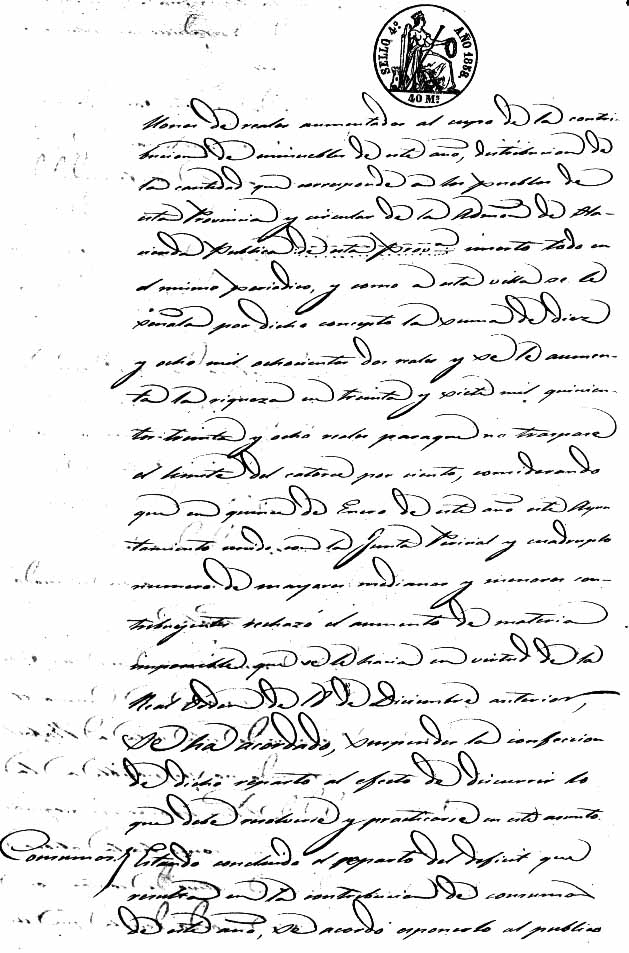 SELLO 4.º AÑO 1858.
40 Ms.
llones de reales aumentados al cupo de la contri-
bucion de inmuebles de este año, distribucion de
la cantidad que corresponde a los pueblos de
esta Provincia y circular de la Admon de Ha-
cienda Publica de esta prova inserto todo en
el mismo periodico, y como a esta villa se le
señala por dicho concepto la suma de diez
y ocho mil ochocientos dos reales y se le aumen-
ta la riqueza en treinta y siete mil quinien-
tos treinta y ocho reales para que no traspase
el limite del catorce por ciento, considerando
que en quince de Enero de este año este Ayun
tamiento unido con la Junta Pericial y cuadruplo
numero de mayores medianos y menores con-
tribuyentes rechazó el aumento de materia
imponible que se le hacia en virtud de la
Real Orden de de Diciembre anterior,
se ha acordado, suspender la confeccion
de dicho reparto al efecto de discurrir lo
que debe resolverse y practicarse en este asunto
Consumos Estando concluido el reparto del deficit que
resulta en la contribucion de consumos
de este año, se acordó esponerlo al publico